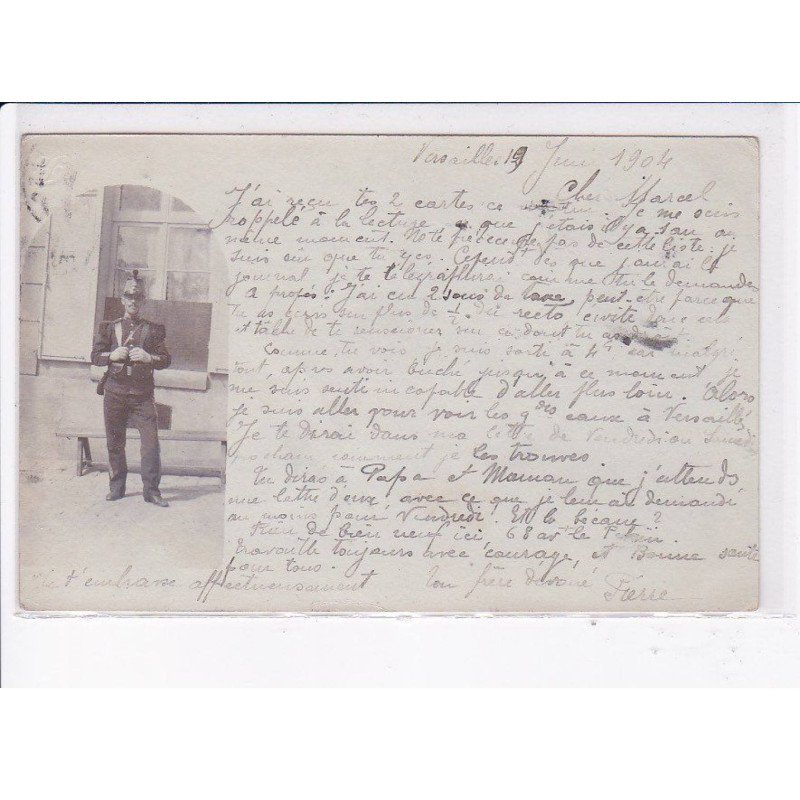 Versailles 19 Juin 1904
Cher Marcel
J'ai reçu tes 2 cartes ce Je me suis
rappelé à la lecture ce que j'étais il y a 1 an au
même moment. Ne te préoccupe pas de cette liste. je
suis sûr que tu y es. dès que j'aurai le
journal je te télégraphierai comme tu le demandes
A propos. J'ai eu 2 sous de taxe peut-être parce que
tu as écris sur plus de ½ du recto évite donc cela
et tâche de te renseigner sur ce dont tu
Comme tu vois je suis sorti à 4h car malgré
tout, après avoir buché jusqu'à ce moment je
me suis senti incapable d'aller plus loin. Alors
je suis aller pour voir les gdes eaux à Versailles
Je te dirai dans ma lettre de Vendredi ou Samedi
prochain comment je les trouves
Tu diras à Papa et Maman que j'attends
une lettre d'eux avec ce que je leur ai demandé
au moins pour Vendredi. Et la bécane?
Rien de bien neuf ici 68 avt le
Travaille toujours avec courage, et Bonne santé
pour tous.
t'embrasse affectueusement Ton frère dévoué Pierre